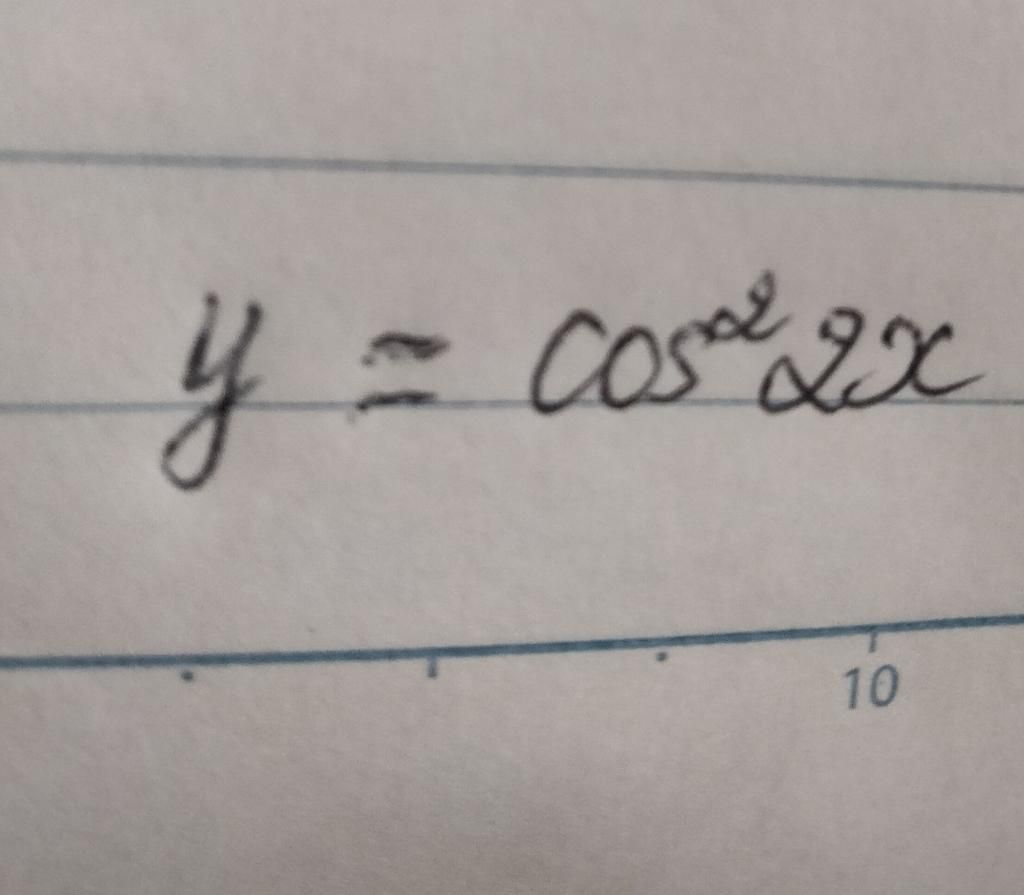 y = cos² 2x
10